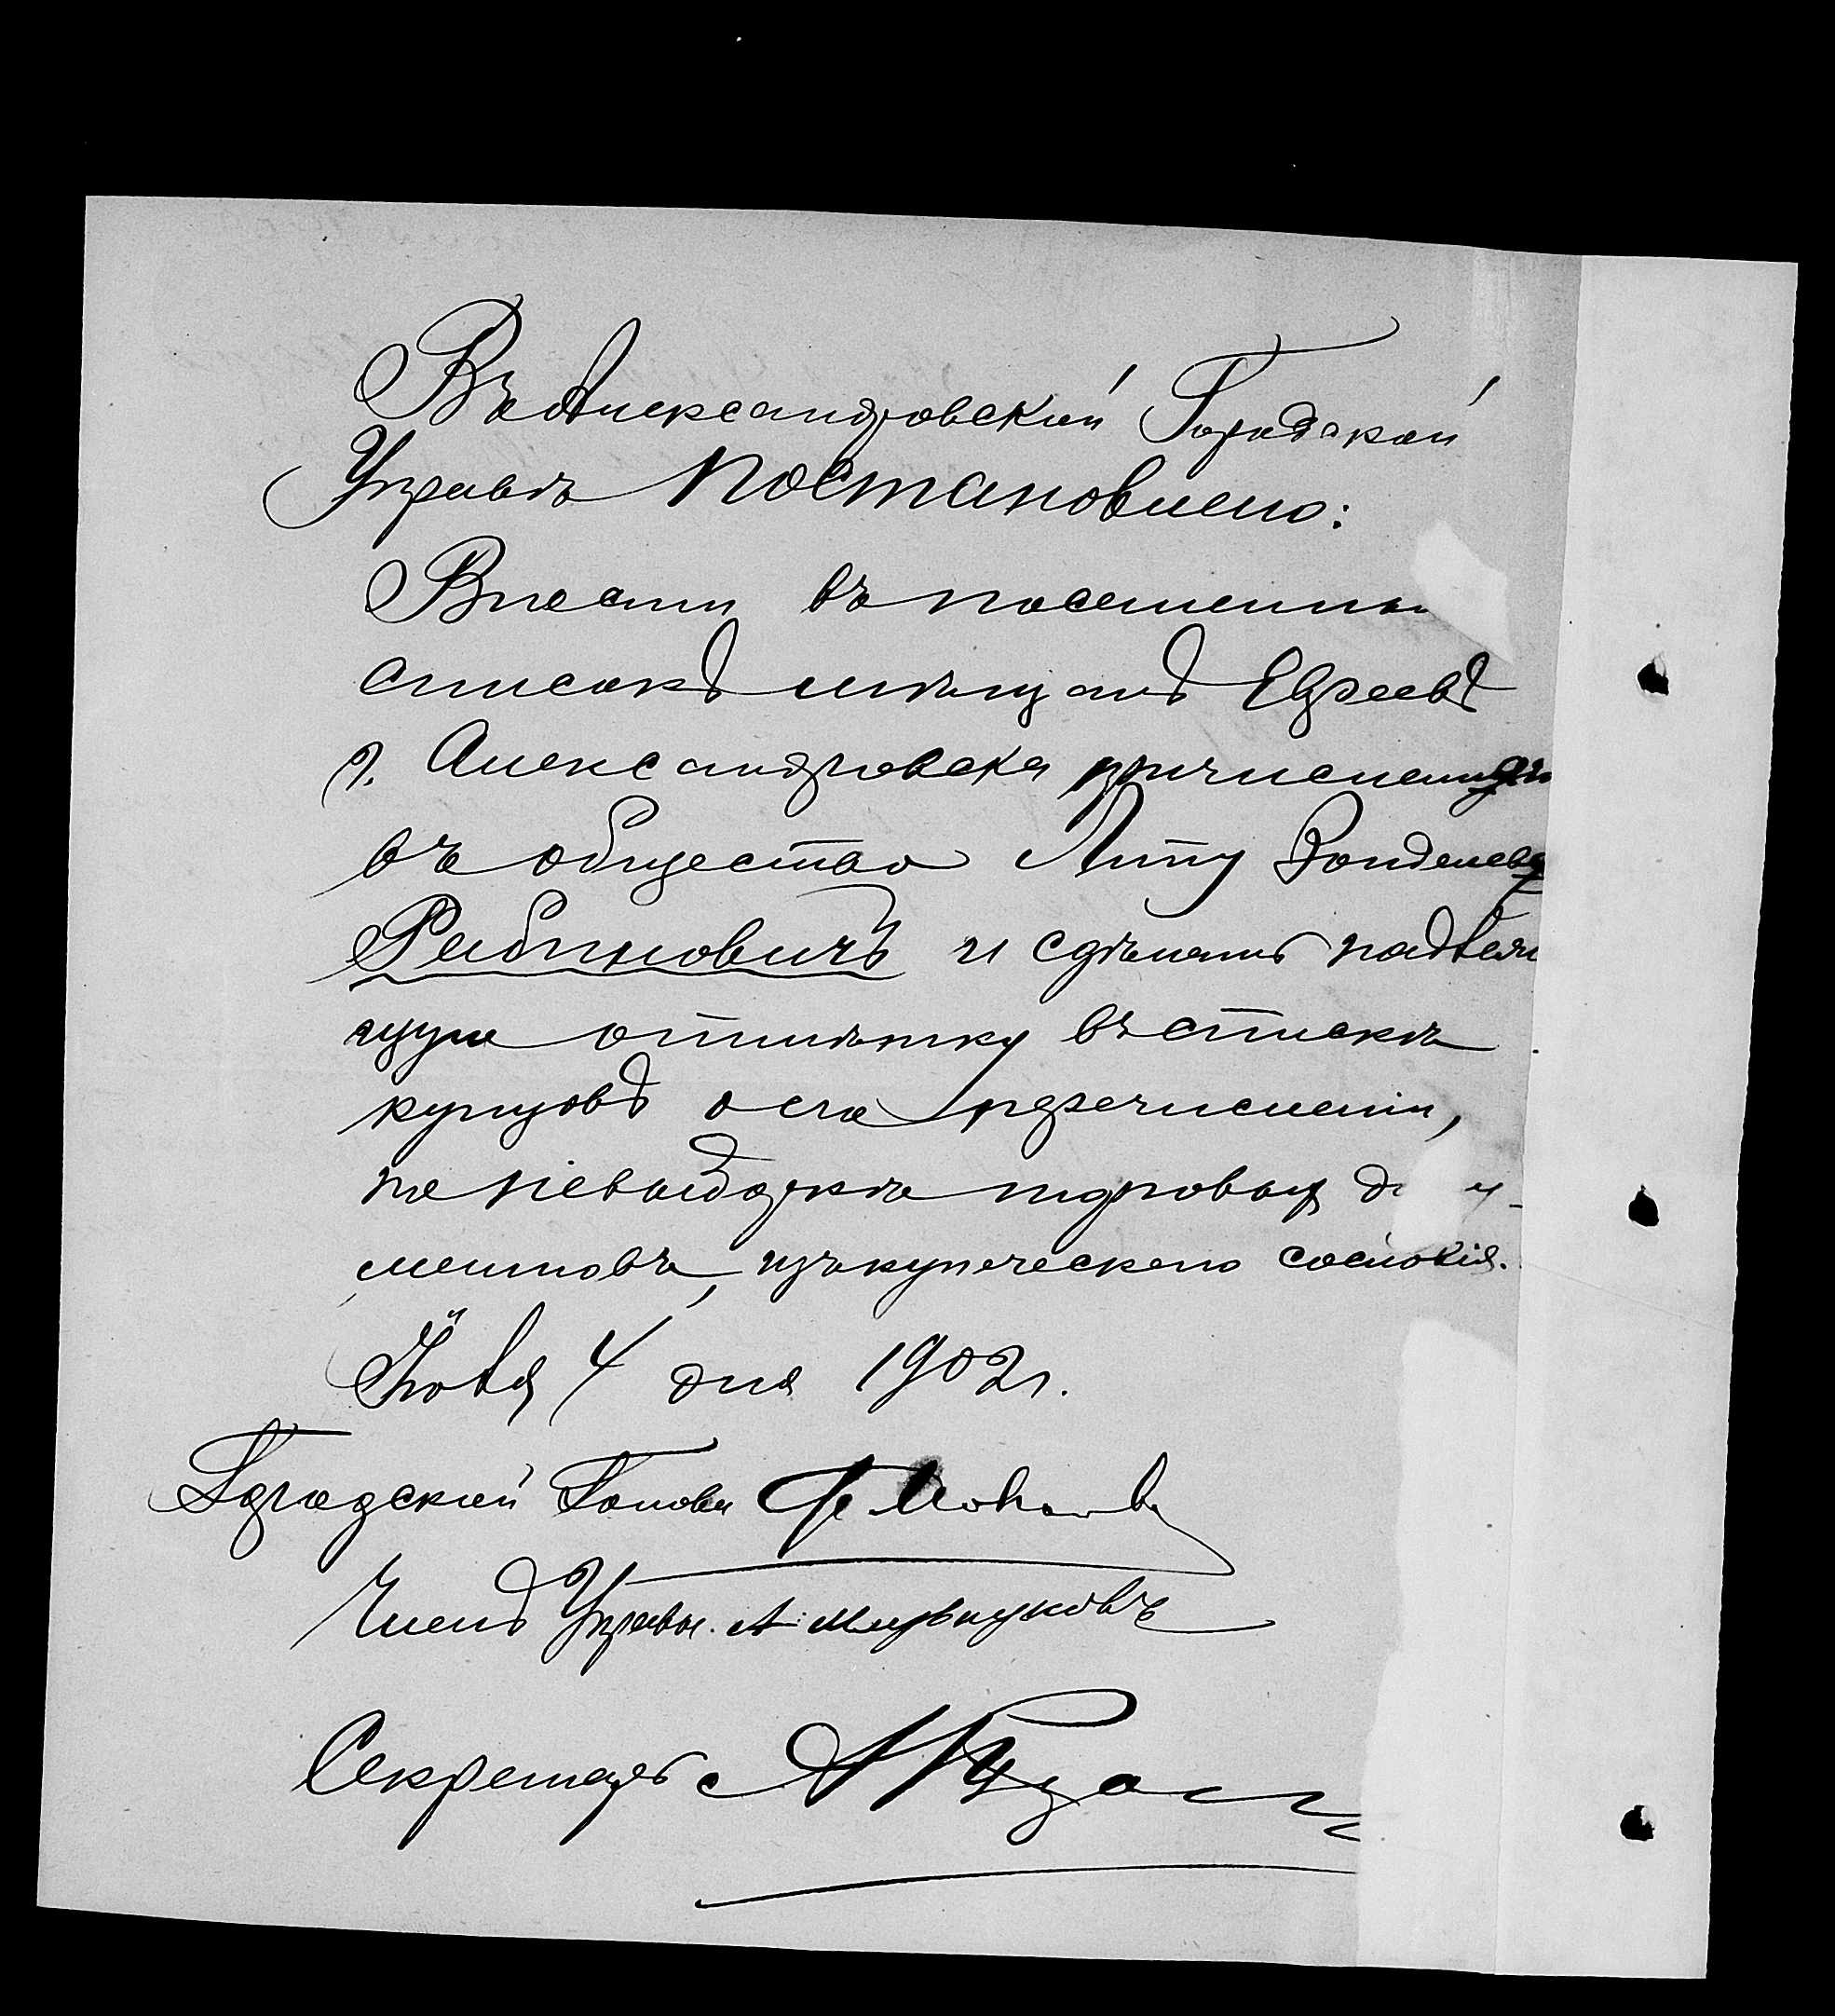 Въ Александровской Городской
Управѣ Постановлено:
Внести въ посемейный
списокъ мѣщанъ Евреевъ
г. Александровска причисленную
въ общество Литу Зонделеву
Рабиновичъ и сдѣлать надлежа
щую отмѣтку въ спискѣ
купцовъ о ея перечисленіи,
по невыборкѣ торговых доку-
ментовъ, изъ купеческаго сословія.
Іюля 4 дня 1902 г.
Городской Голова
Членъ Управы. А.
Секретарь А